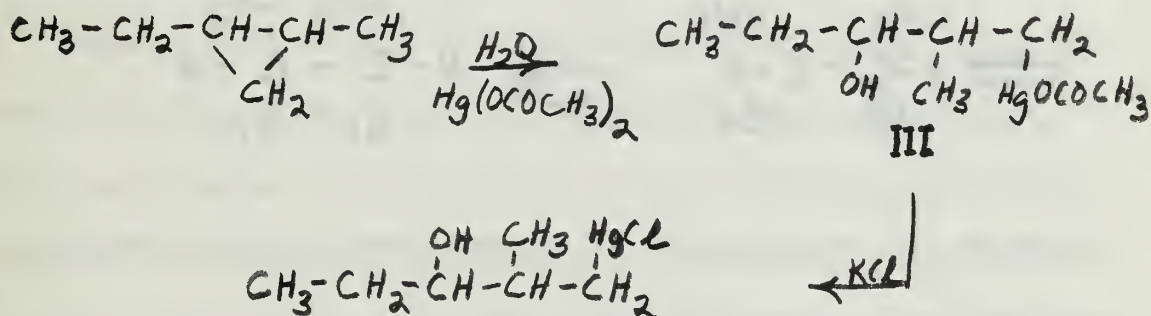 CH3-CH2-CH-CH-CH3
CH2
H2O
Hg(OCOCH3)2
CH3-CH2-CH-CH-CH2
OH CH3 HgOCOCH3
III
KCl
OH CH3 HgCl
CH3-CH2-CH-CH-CH2